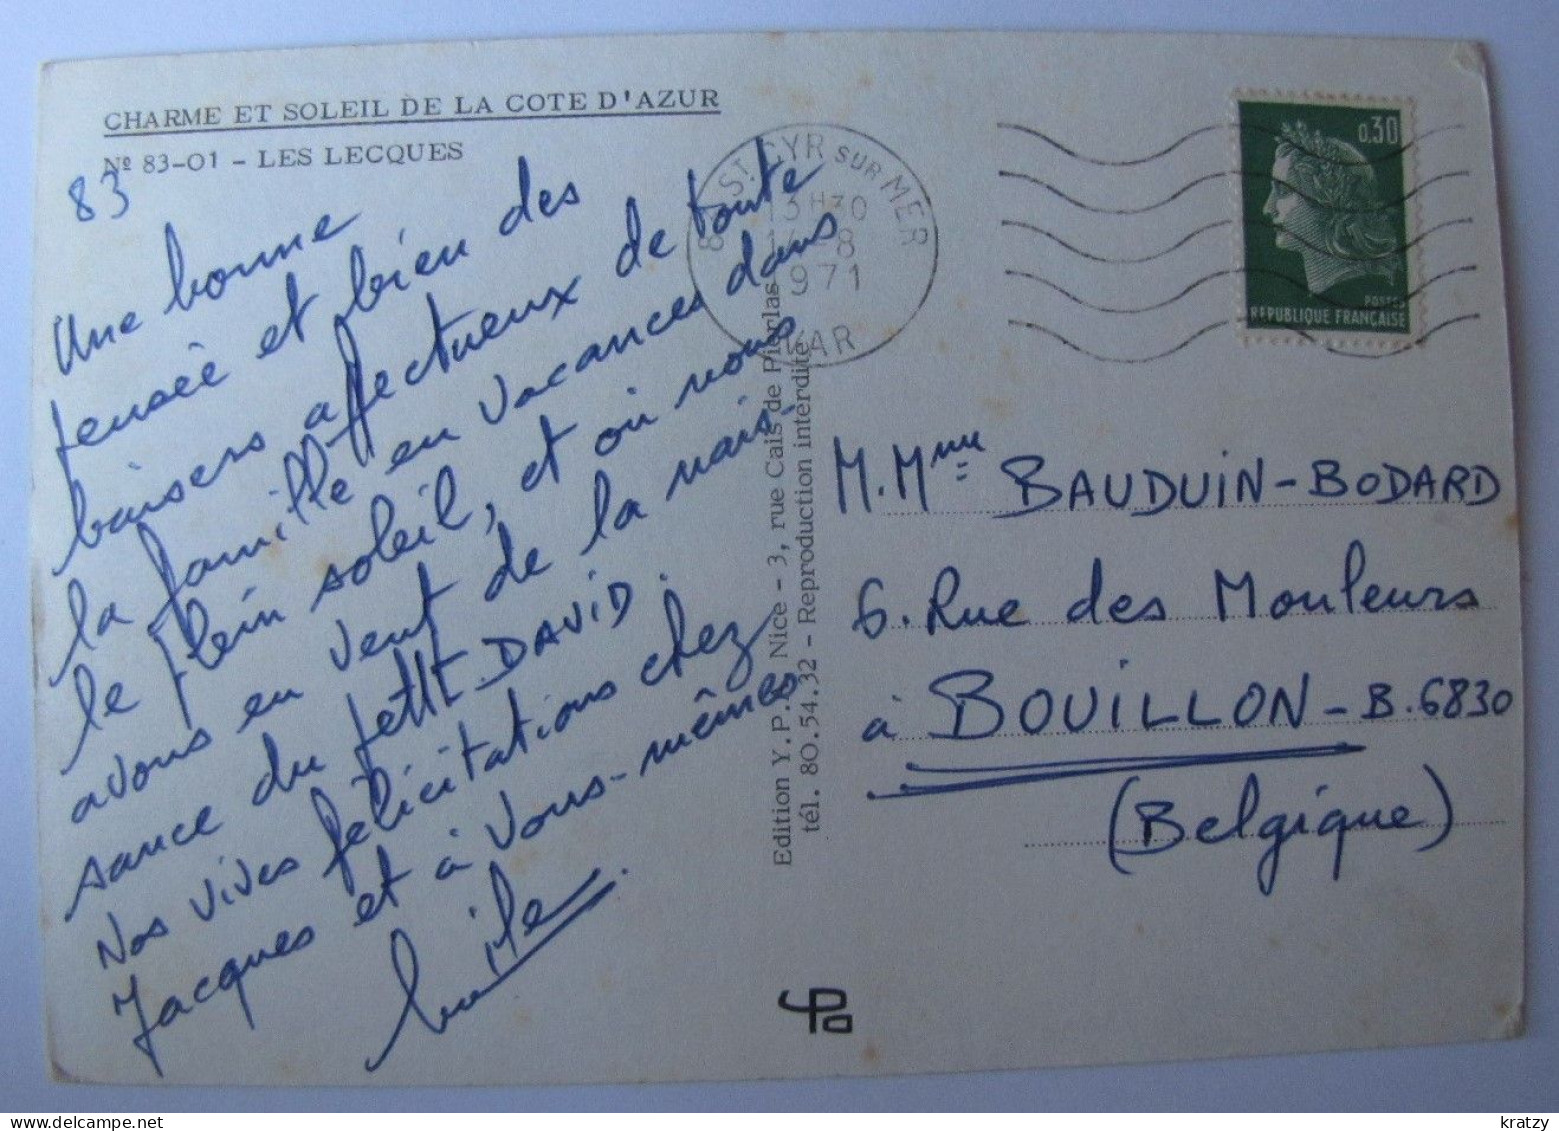 CHARME ET SOLEIL DE LA COTE D'AZUR
Nº 83-01 - LES LECQUES
83
Une bonne
pensée et bien des
baisers affectueux de toute
la famille en vacances dans
le plein soleil, et où nous
avons eu vent de la nais-
sance du petit DAVID.
Nos vives félicitations chez
Jacques et à vous-mêmes
Edition Y. P. Nice - 3, rue Cais de Pierlas
tél. 80.54.32 - Reproduction interdite
ST. CYR SUR MER
13H30
8
1971
VAR
0,30
POSTES
REPUBLIQUE FRANÇAISE
M. Mme BAUDUIN-BODARD
6. Rue des Mouleurs
à BOUILLON - B. 6830
(Belgique)
www.delcampe.net
kratzy